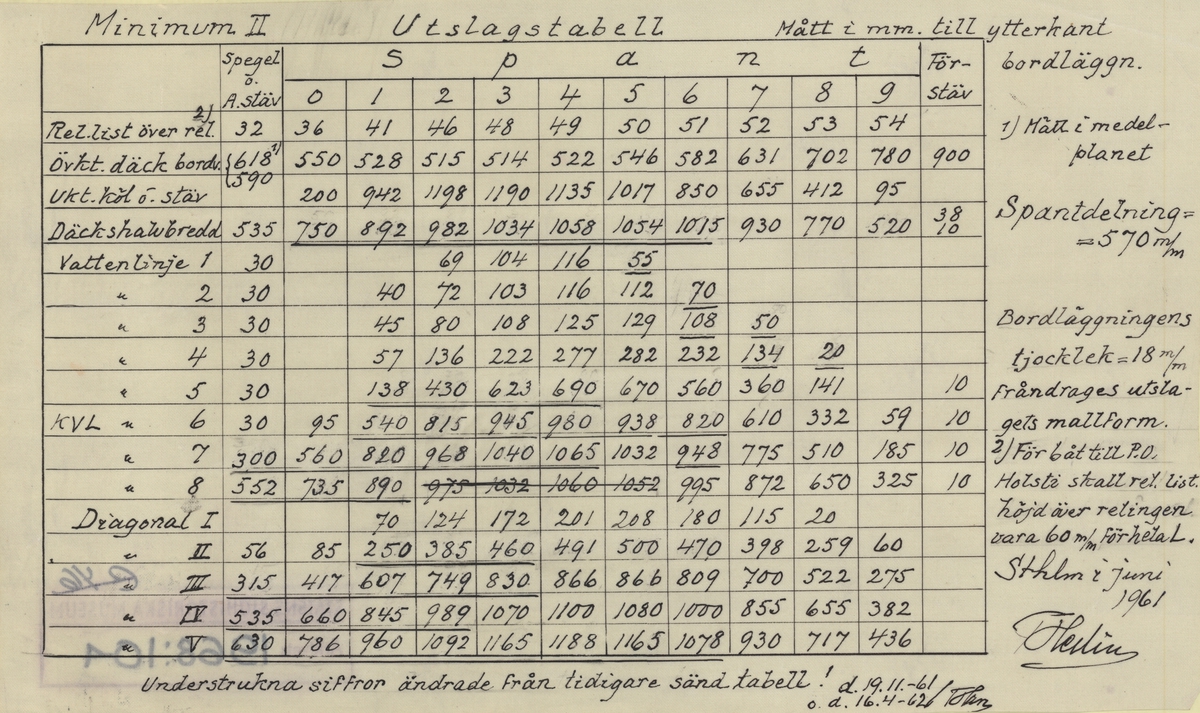 Minimum II Utslagstabell Mått i mm. till ytterkant
bordläggn.
Spegel o. A.stäv S p a n t För-stäv
0 1 2 3 4 5 6 7 8 9
Rel.list över rel. 2) 32 36 41 46 48 49 50 51 52 53 54
Övkt. däck bordv. {618 1) 590 550 528 515 514 522 546 582 631 702 780 900
Ukt. köl o. stäv 200 942 1198 1190 1135 1017 850 655 412 95
Däckshalvbredd 535 750 892 982 1034 1058 1054 1015 930 770 520 38 10
Vattenlinje 1 30 69 104 116 55
" 2 30 40 72 103 116 112 70
" 3 30 45 80 108 125 129 108 50
" 4 30 57 136 222 277 282 232 134 20
" 5 30 138 430 623 690 670 560 360 141 10
KVL " 6 30 95 540 815 945 980 938 820 610 332 59 10
" 7 300 560 820 968 1040 1065 1032 948 775 510 185 10
" 8 552 735 890 975 1032 1060 1052 995 872 650 325 10
Diagonal I 70 124 172 201 208 180 115 20
" II 56 85 250 385 460 491 500 470 398 259 60
" III 315 417 607 749 830 866 866 809 700 522 275
" IV 535 660 845 989 1070 1100 1080 1000 855 655 382
" V 630 786 960 1092 1165 1188 1165 1078 930 717 436
1) Mått i medel-
planet
Spantdelning =
= 570 m/m
Bordläggningens
tjocklek = 18 m/m
fråndrages utsla-
gets mallform.
2) För båt till P.O.
Holsti skall rel. list.
höjd över relingen
vara 60 m/m förhela L.
Sthlm i juni
1961
Understrukna siffror ändrade från tidigare sänd tabell! d. 19.11.-61
o. d. 16.4-62
1968:101